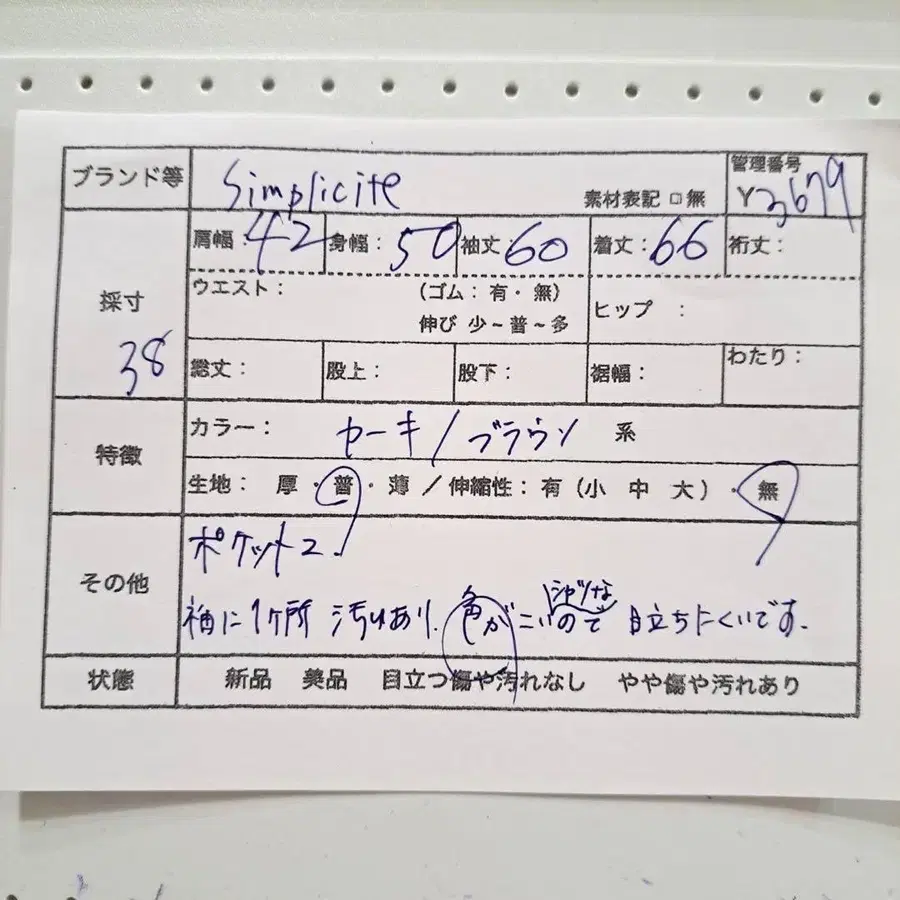 ブランド等 Simplicite 素材表記 □ 無 管理番号 Y3679
採寸 38
肩幅:42 身幅:50 袖丈:60 着丈:66 裄丈:
ウエスト: (ゴム:有・無) 伸び 少~普~多 ヒップ :
総丈: 股上: 股下: 裾幅: わたり:
特徴
カラー: カーキ/ブラウン 系
生地: 厚・普・薄/伸縮性:有(小 中 大)・無
その他
ポケット2
袖に1ヶ所 汚れあり. 色がこいので 目立ちにくいです.
状態 新品 美品 目立つ傷や汚れなし やや傷や汚れあり